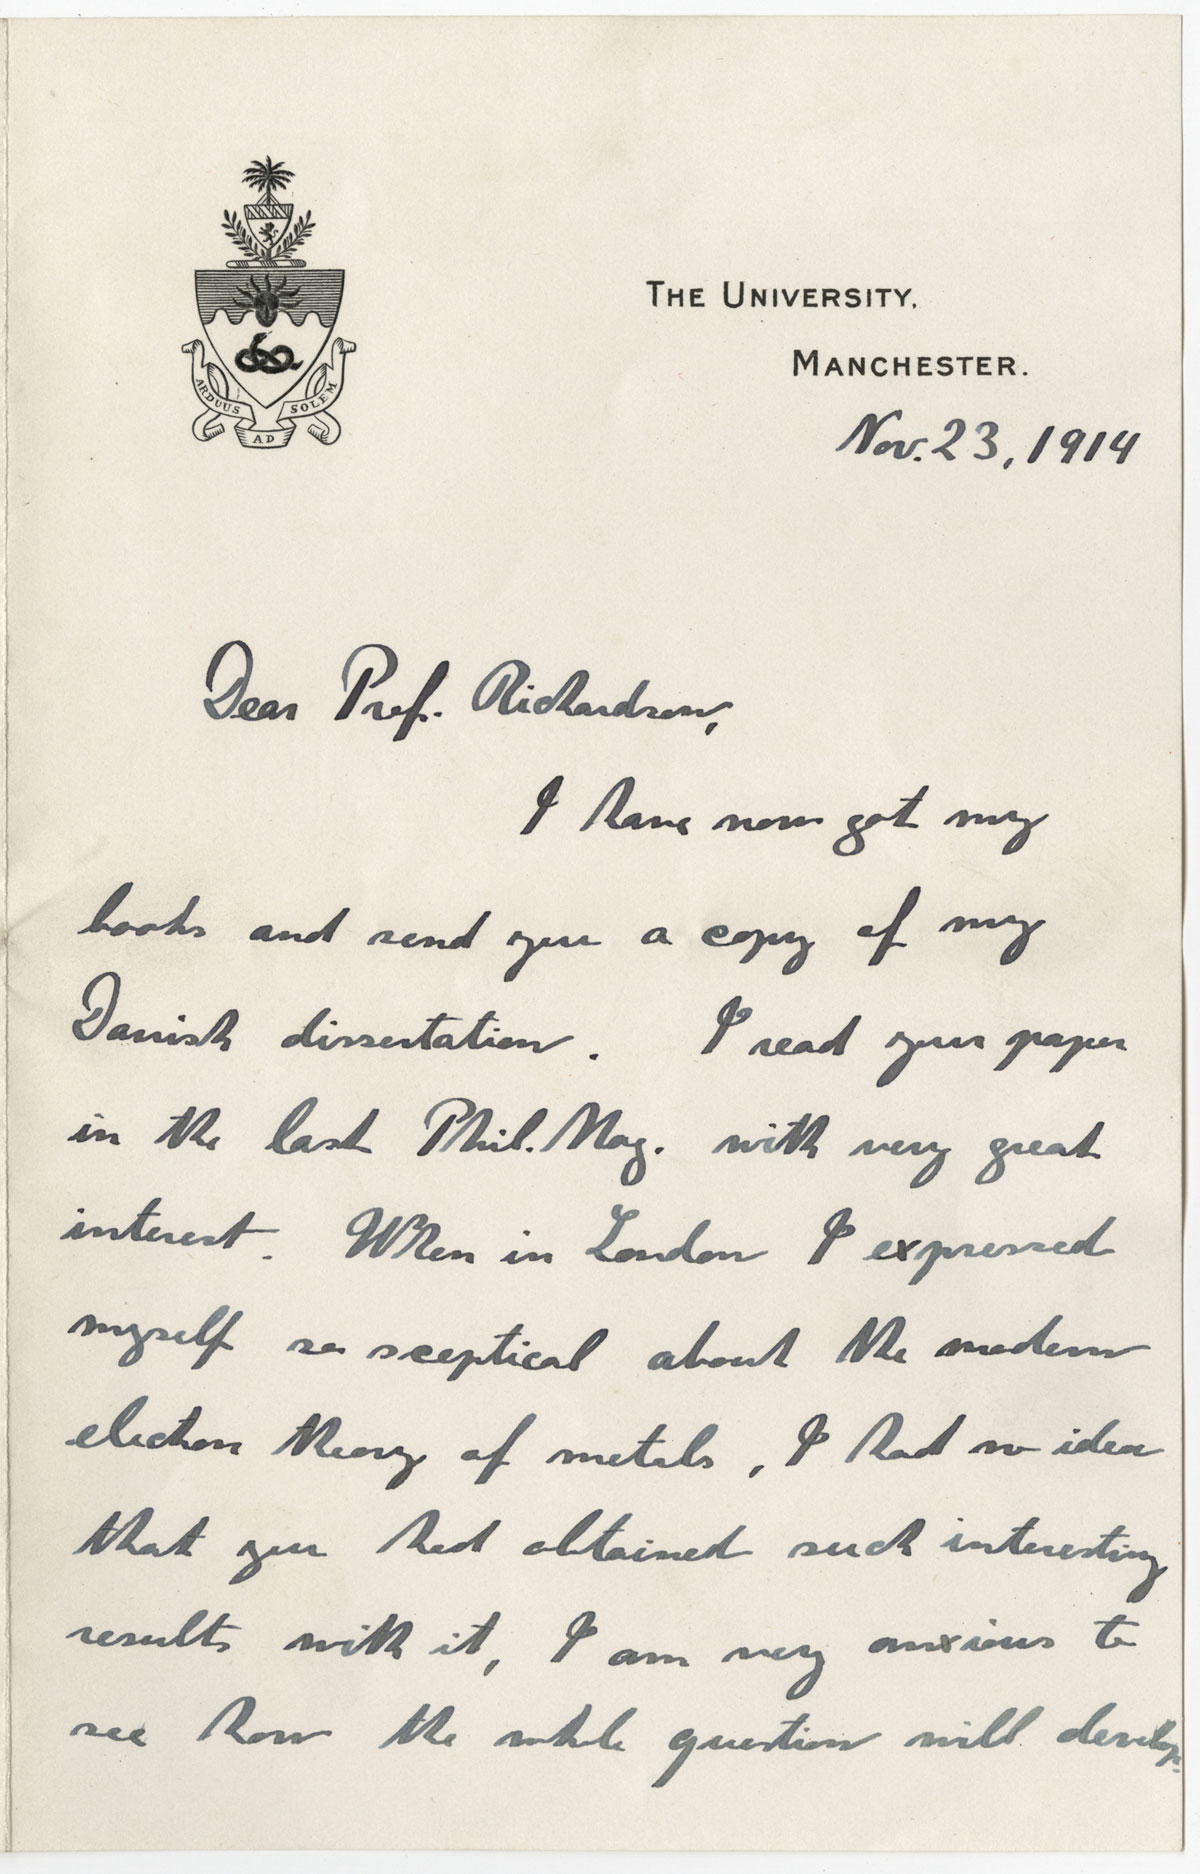 ARDUUS AD SOLEM
THE UNIVERSITY,
MANCHESTER.
Nov. 23, 1914
Dear Prof. Richardson,
I have now got my
books and send you a copy of my
Danish dissertation. I read your paper
in the last Phil. Mag. with very great
interest. When in London I expressed
myself so sceptical about the modern
electron theory of metals, I had no idea
that you had obtained such interesting
results with it, I am very anxious to
see how the whole question will develop.